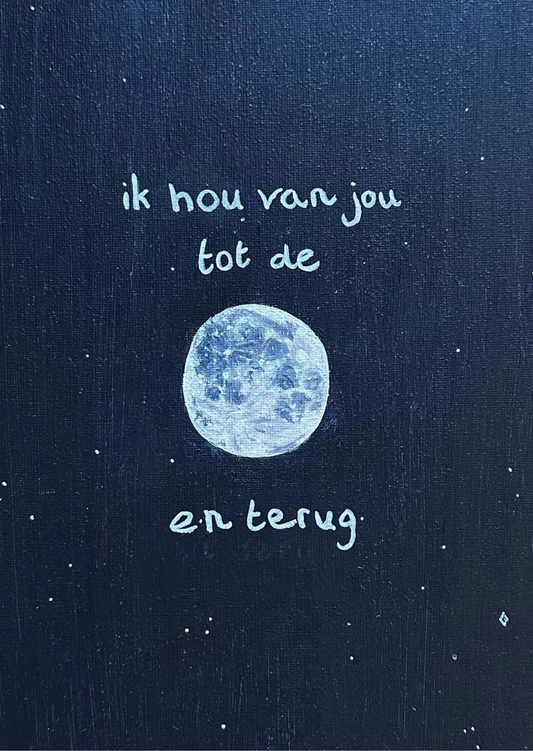 ik hou van jou
tot de
en terug